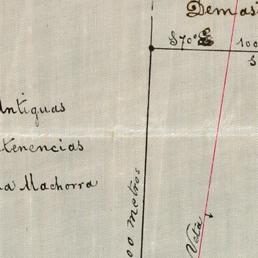 Demas
S70°E 100
S
Antiguas
rtenencias
na Machorra
00 metros
Veta